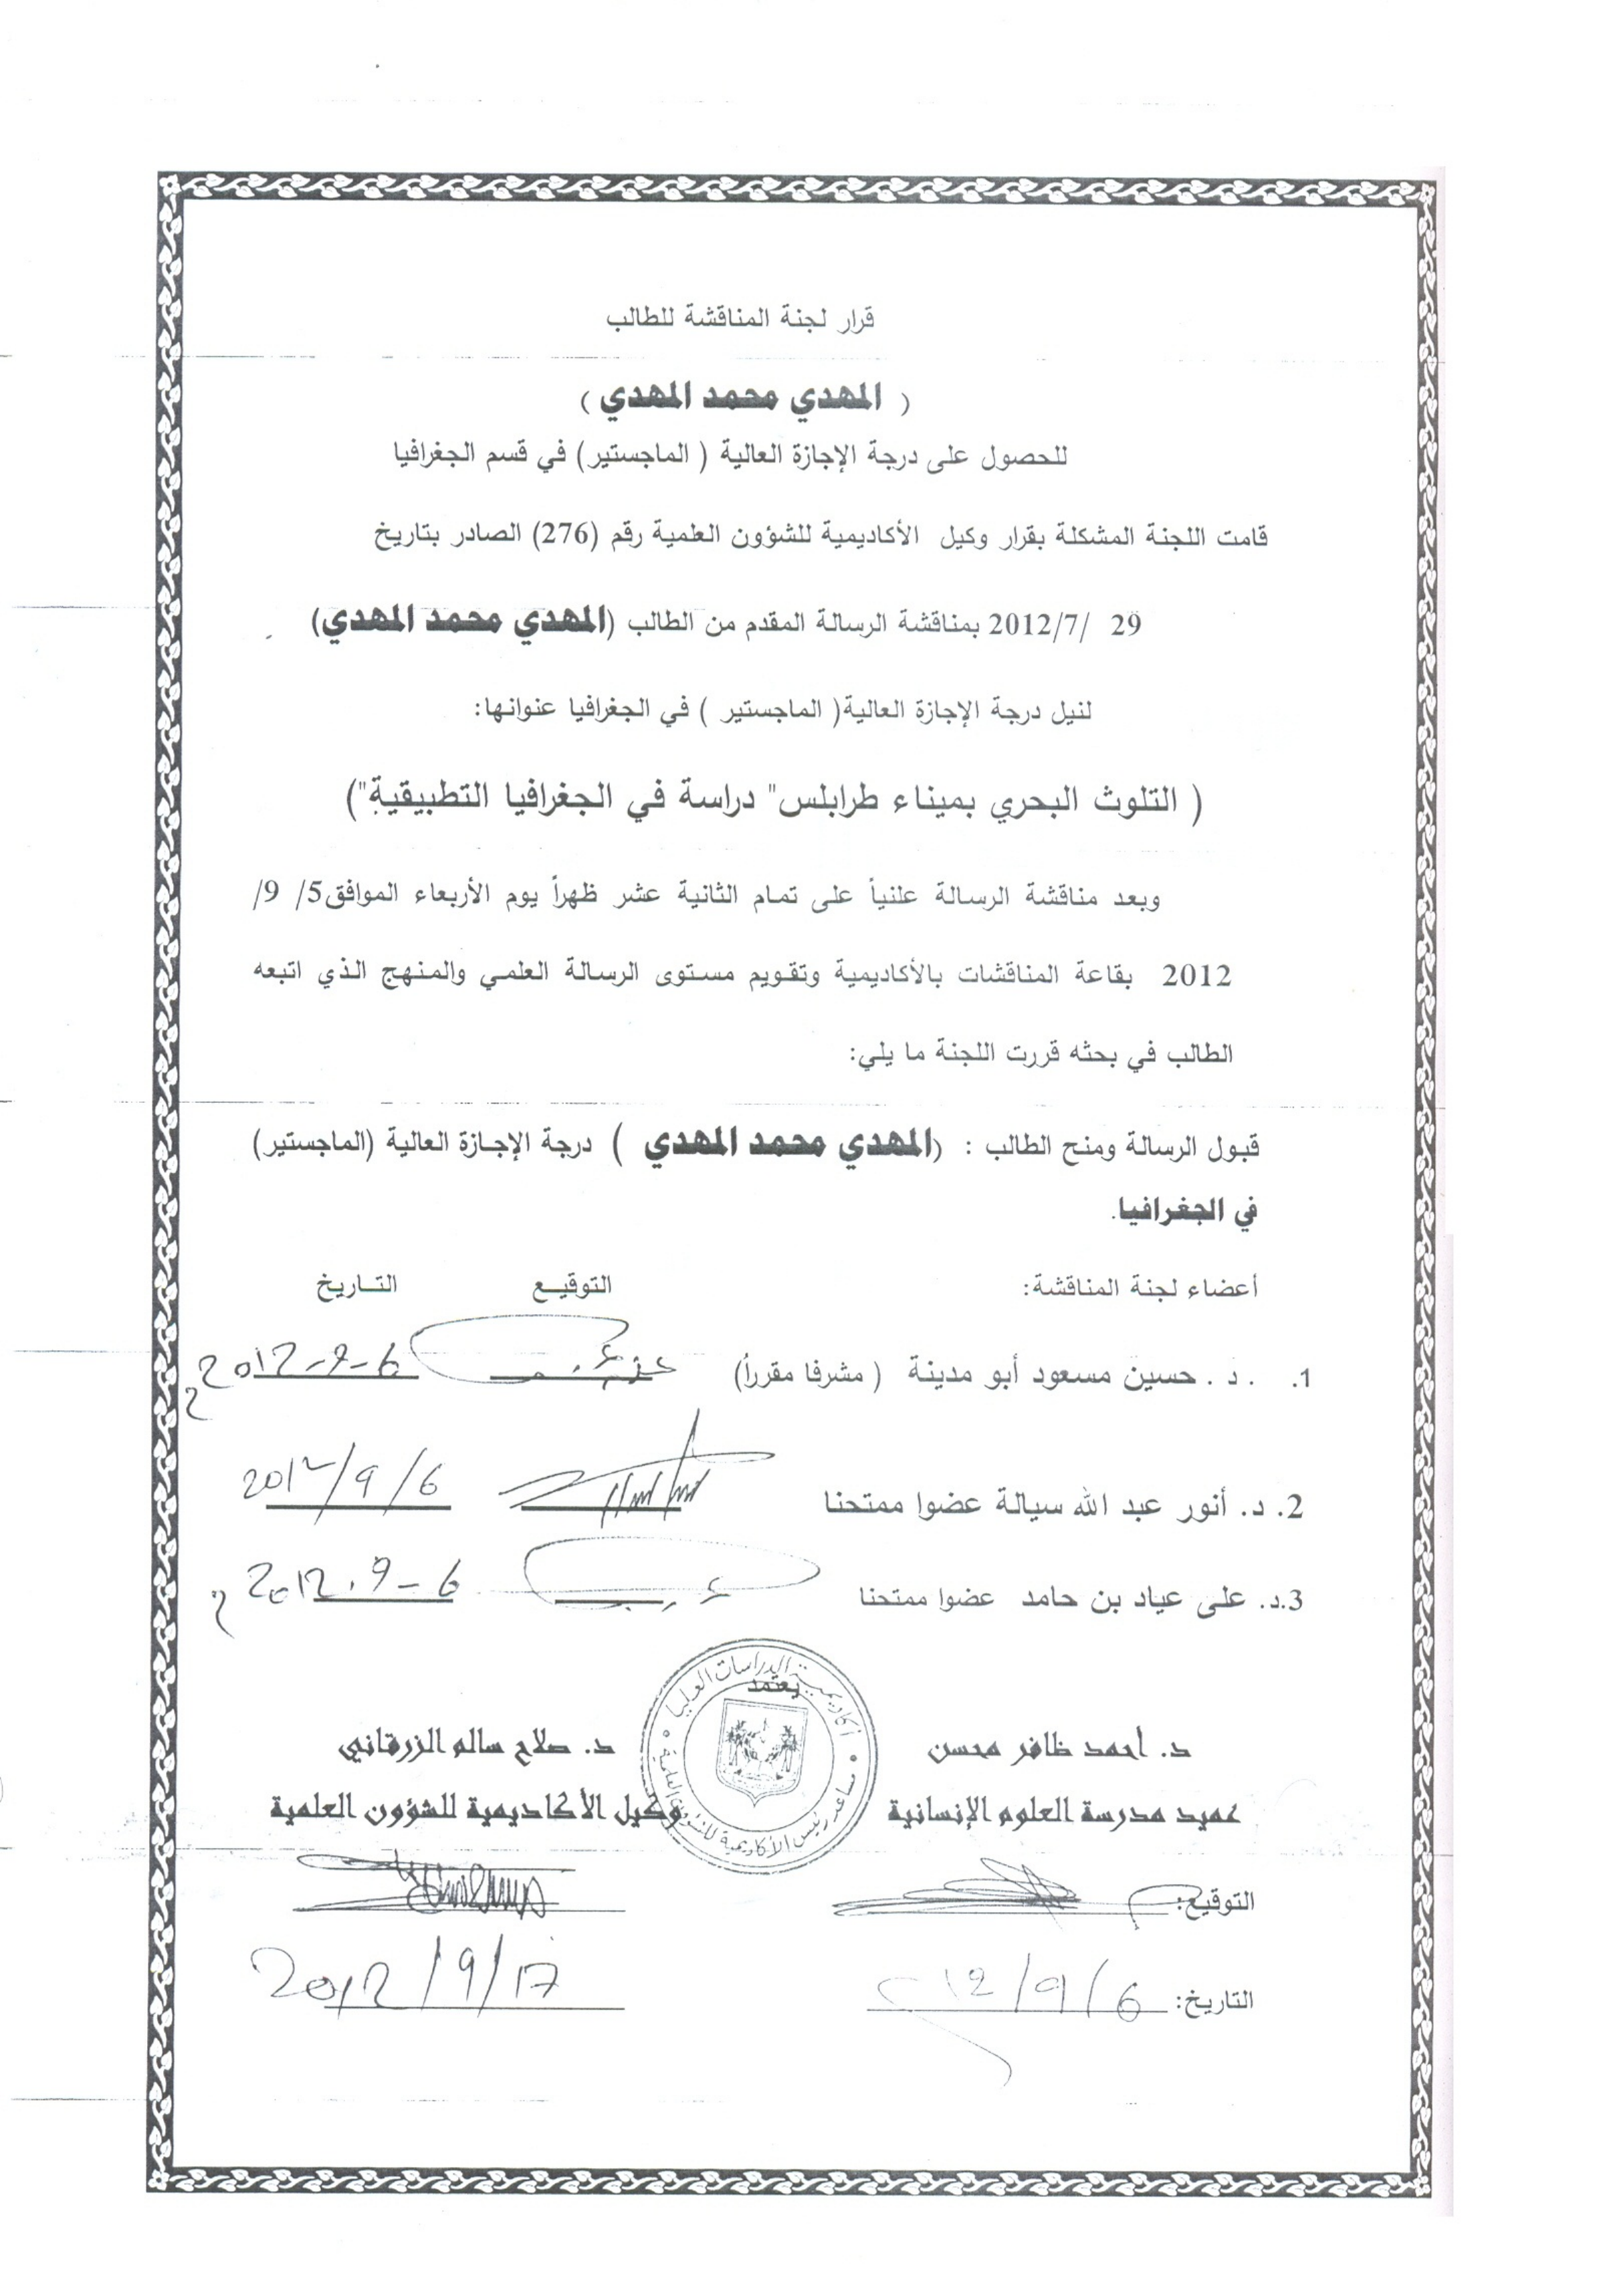 قرار لجنة المناقشة للطالب
( المهدي محمد المهدي )
للحصول على درجة الإجازة العالية ( الماجستير) في قسم الجغرافيا
قامت اللجنة المشكلة بقرار وكيل الأكاديمية للشؤون العلمية رقم (276) الصادر بتاريخ
29 /2012/7 بمناقشة الرسالة المقدم من الطالب (المهدي محمد المهدي)
لنيل درجة الإجازة العالية( الماجستير ) في الجغرافيا عنوانها:
( التلوث البحري بميناء طرابلس" دراسة في الجغرافيا التطبيقية")
وبعد مناقشة الرسالة علنياً على تمام الثانية عشر ظهراً يوم الأربعاء الموافق5/ 9/
2012 بقاعة المناقشات بالأكاديمية وتقويم مستوى الرسالة العلمي والمنهج الذي اتبعه
الطالب في بحثه قررت اللجنة ما يلي:
قبول الرسالة ومنح الطالب : (المهدي محمد المهدي ) درجة الإجازة العالية (الماجستير)
في الجغرافيا.
أعضاء لجنة المناقشة: التوقيـع التـاريخ
1. . د . حسين مسعود أبو مدينة ( مشرفا مقرراً) 6-9-2012
2. د. أنور عبد الله سيالة عضوا ممتحنا 6/9/2012
3.د. على عياد بن حامد عضوا ممتحنا 6-9.2012
أكاديمية الدراسات العليا
يعتمد
مساعد رئيس الأكاديمية للشؤون العلمية
د. أحمد ظافر محسن د. صلاح سالم الزرقاني
عميد مدرسة العلوم الإنسانية وكيل الأكاديمية للشؤون العلمية
التوقيع:
التاريخ: 6/9/12 17/9/2012